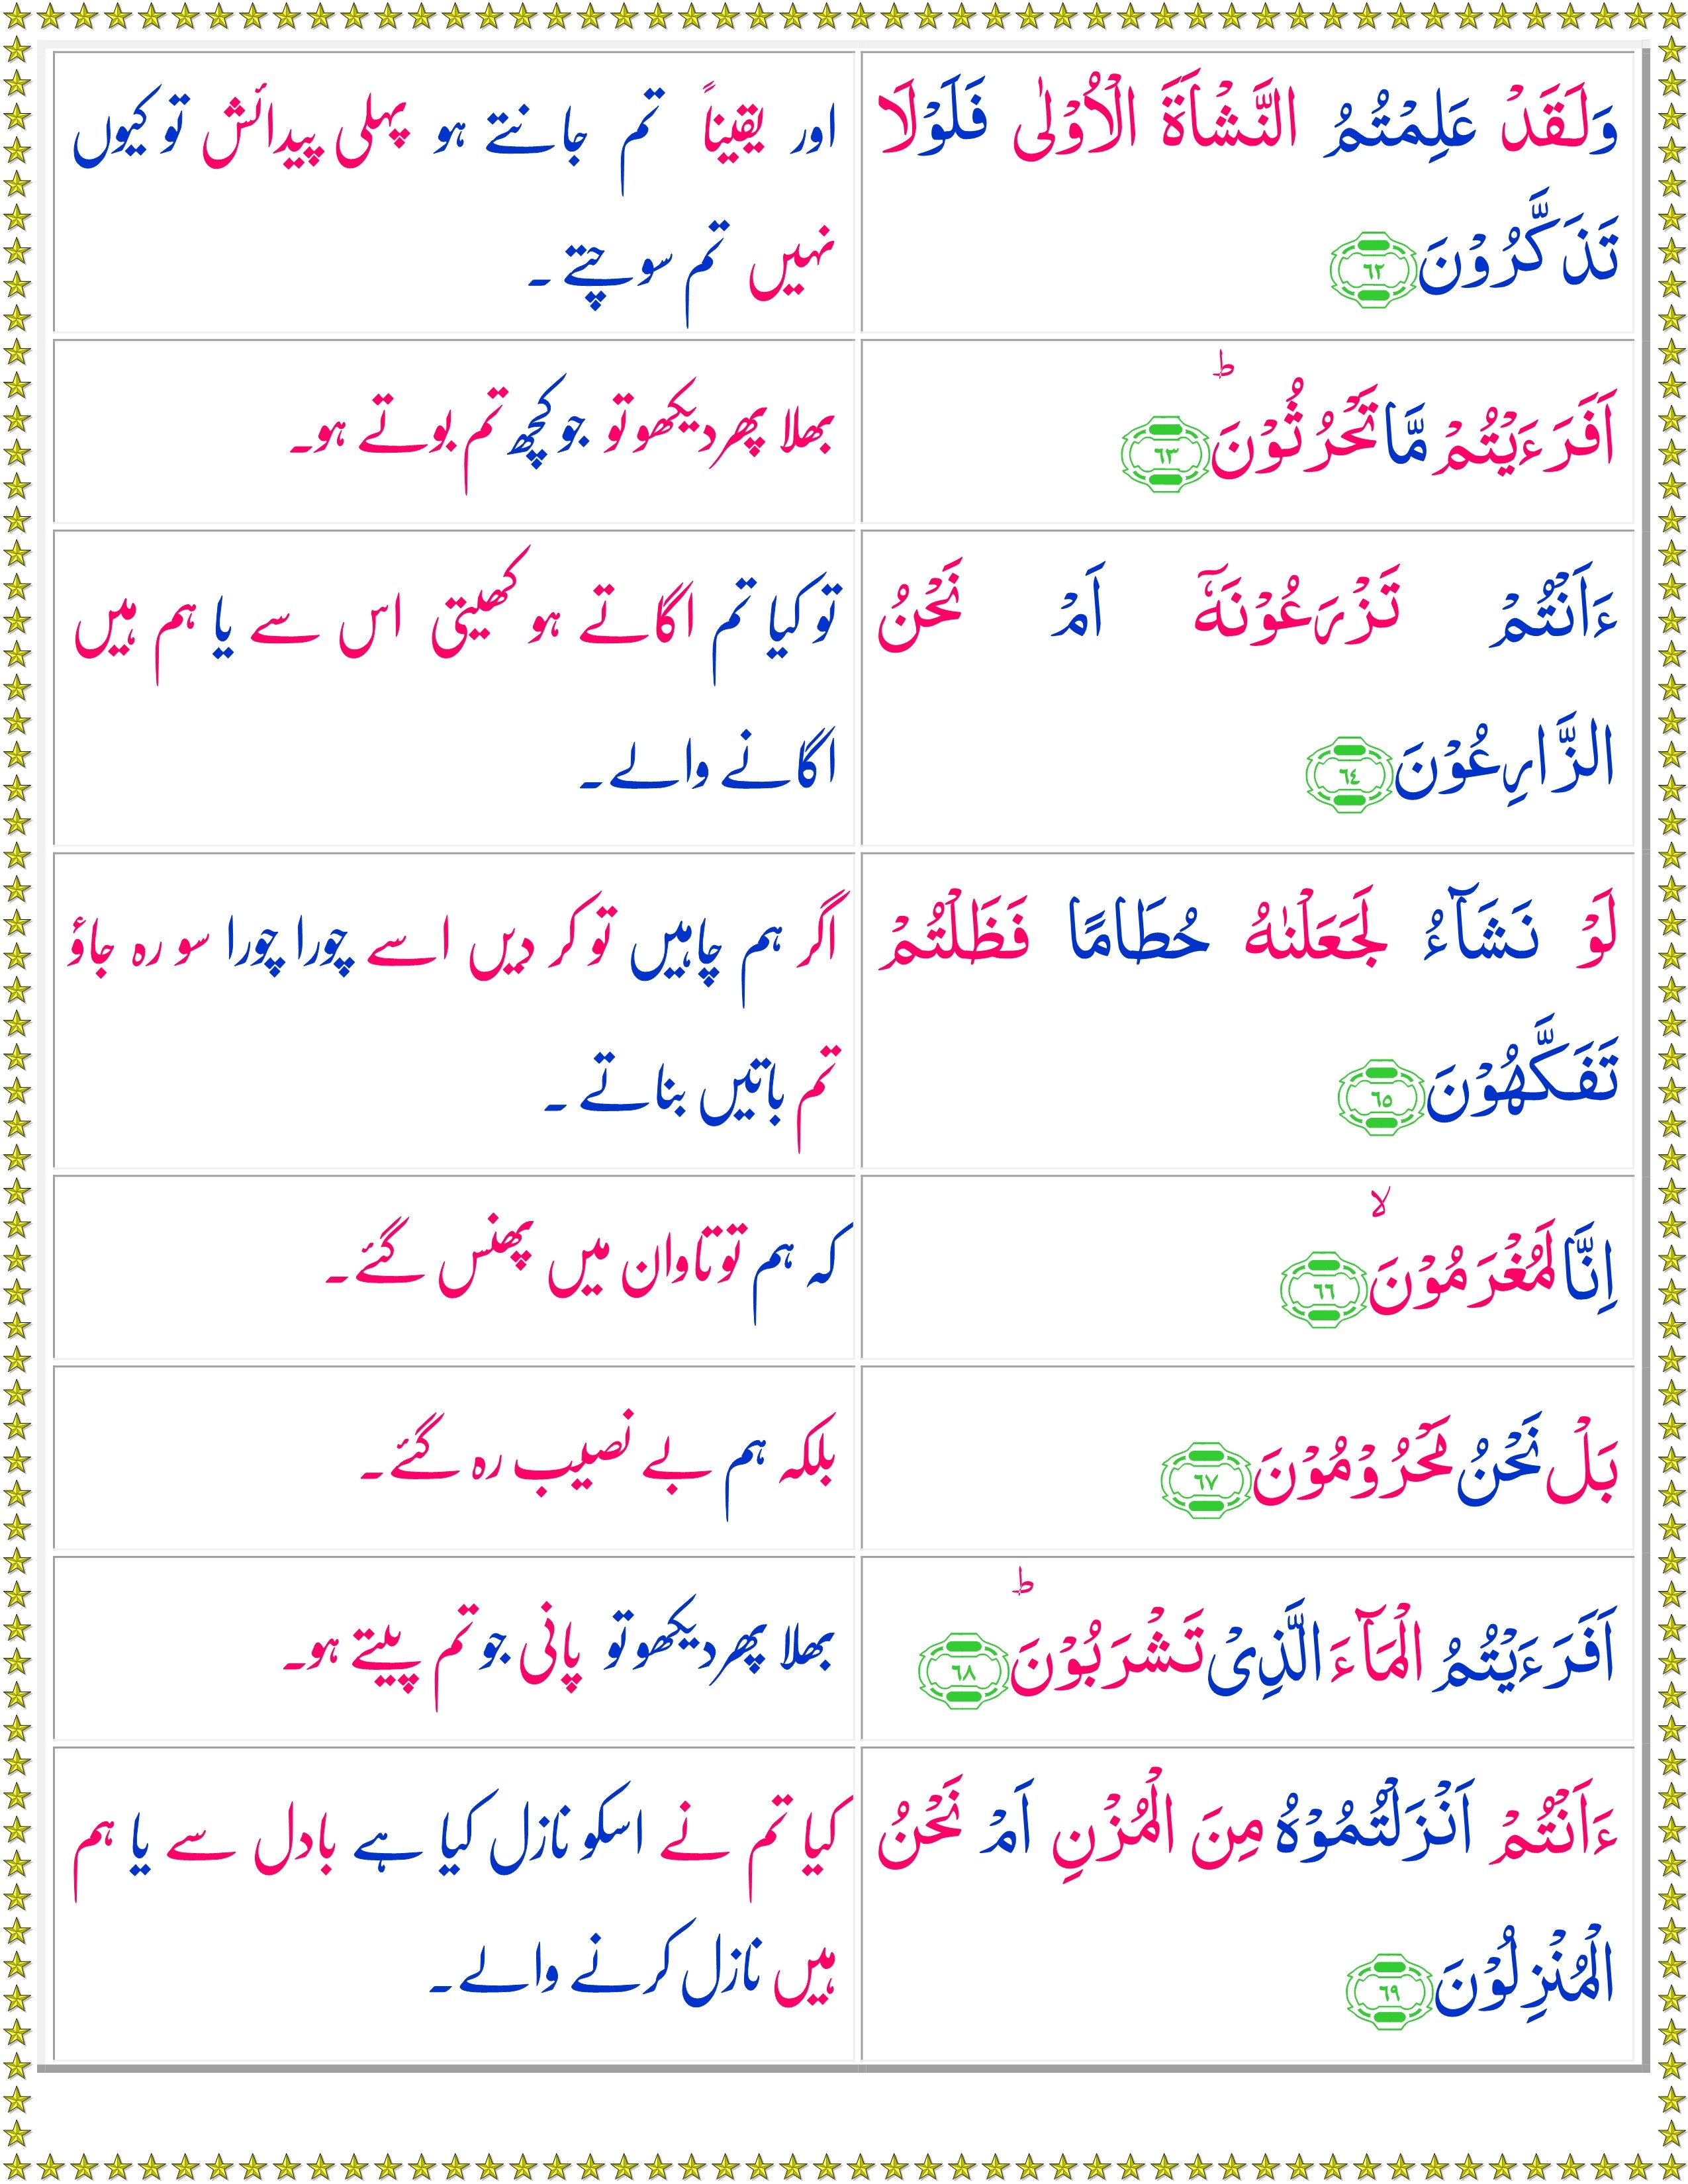 وَلَقَدْ عَلِمْتُمُ النَّشْاَةَ الْاُوْلٰى فَلَوْلَا
تَذَكَّرُوْنَ ٦٢
اور یقیناً تم جانتے ہو پہلی پیدائش تو کیوں
نہیں تم سوچتے ۔
اَفَرَءَيْتُمْ مَّا تَحْرُثُوْنَ ؕ ٦٣
بھلا پھر دیکھو تو جو کچھ تم بوتے ہو۔
ءَاَنْتُمْ تَزْرَعُوْنَهٗۤ اَمْ نَحْنُ
الزَّارِعُوْنَ ٦٤
تو کیا تم اگاتے ہو کھیتی اس سے یا ہم ہیں
اگانے والے۔
لَوْ نَشَآءُ لَجَعَلْنٰهُ حُطَامًا فَظَلْتُمْ
تَفَكَّهُوْنَ ٦٥
اگر ہم چاہیں تو کر دیں اسے چورا چورا سو رہ جاؤ
تم باتیں بناتے ۔
اِنَّا لَمُغْرَمُوْنَ ۙ ٦٦
کہ ہم تو تاوان میں پھنس گئے۔
بَلْ نَحْنُ مَحْرُوْمُوْنَ ٦٧
بلکہ ہم بے نصیب رہ گئے۔
اَفَرَءَيْتُمُ الْمَآءَ الَّذِىْ تَشْرَبُوْنَ ؕ ٦٨
بھلا پھر دیکھو تو پانی جو تم پیتے ہو۔
ءَاَنْتُمْ اَنْزَلْتُمُوْهُ مِنَ الْمُزْنِ اَمْ نَحْنُ
الْمُنْزِلُوْنَ ٦٩
کیا تم نے اسکو نازل کیا ہے بادل سے یا ہم
ہیں نازل کرنے والے۔